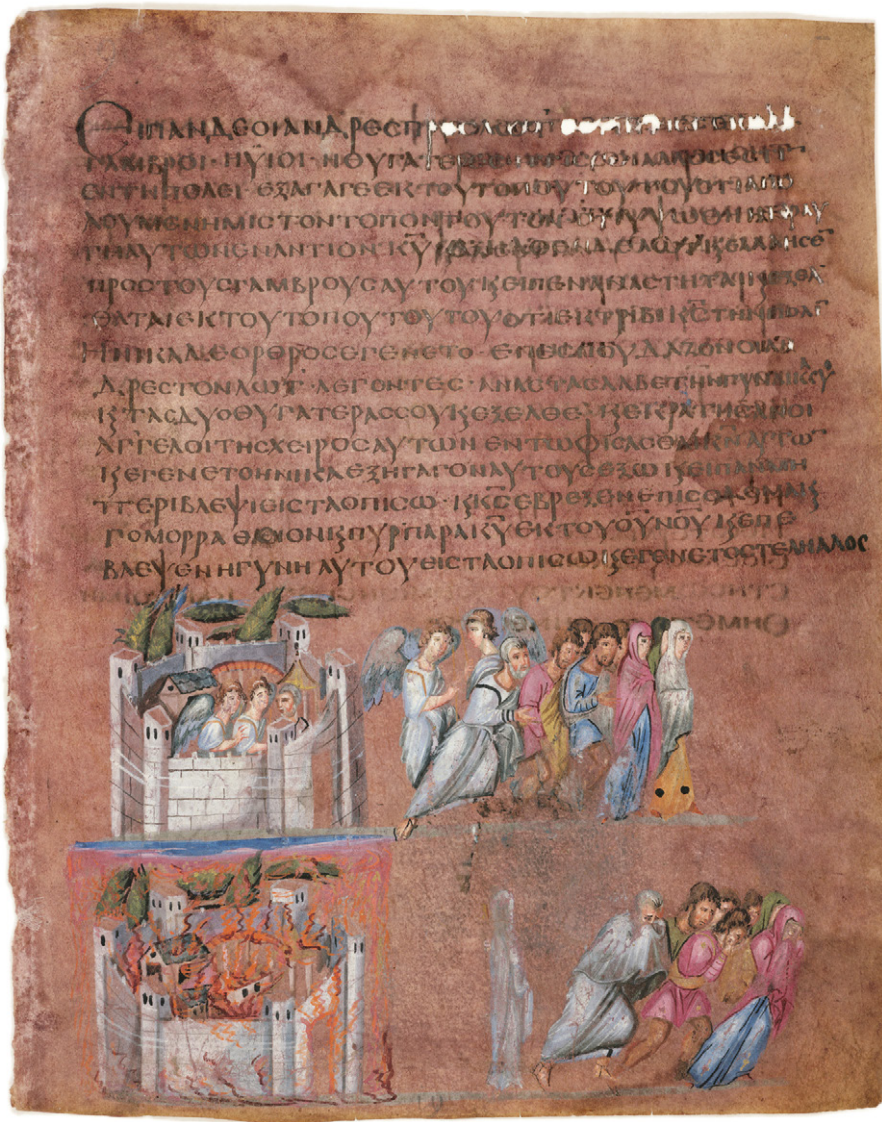 ΕΙΠΑΝΔΕΟΙΑΝΔΡΕСΠΡΟСΛΩΤ
ΓΑΜΒΡΟΙ·ΗΥΙΟΙ·ΗΘΥΓΑΤΕΡΕС
ΕΝΤΗΠΟΛΕΙ·ΕΞΑΓΑΓΕΕΚΤΟΥΤΟΠΟΥΤΟΥΤΟΥΟΤΙΑΠΟ
ΛΟΥΜΕΝΗΜΙСΤΟΝΤΟΠΟΝΤΟΥΤΟΝΟΤΙΥΨΩΘΗΗΚΡΑΥ
ΓΗΑΥΤΩΝΕΝΑΝΤΙΟΝΚ̅Υ̅
ΠΡΟСΤΟΥСΓΑΜΒΡΟΥСΑΥΤΟΥϗΕΙΠΕΝΑΝΑСΤΗΤΑΙϗΕΞΕΛ
ΘΑΤΑΙΕΚΤΟΥΤΟΠΟΥΤΟΥΤΟΥΟΤΙΕΚΤΡΙΒΙΚ̅С̅ΤΗΝΠΟΛΙ̅
ΗΝΙΚΑΔΕΟΡΘΡΟСΕΓΕΝΕΤΟ·ΕΠΕСΠΟΥΔΑΖΟΝΟΙΑΝ
ΔΡΕСΤΟΝΛΩΤ·ΛΕΓΟΝΤΕС·ΑΝΑСΤΑСΛΑΒΕΤΗΝΓΥΝΑΙΚΑСΟΥ
ϗΤΑСΔΥΟΘΥΓΑΤΕΡΑССΟΥϗΕΞΕΛΘΕ·ϗΕΚΡΑΤΗСΑΝΟΙ
ΑΓΓΕΛΟΙΤΗСΧΕΙΡΟСΑΥΤΩΝΕΝΤΩΦΙСΑСΘΑΙΚ̅Ν̅ΑΥΤΩ̅
ϗΕΓΕΝΕΤΟΗΝΙΚΑΕΞΗΓΑΓΟΝΑΥΤΟΥСΕΞΩϗΕΙΠΑΝΜΗ
ΠΕΡΙΒΛΕΨΙΕΙСΤΑΟΠΙСΩ·ϗΚ̅С̅ΕΒΡΕΞΕΝΕΠΙСΟΔΟΜΑϗ
ΓΟΜΟΡΡΑΘΙΟΝϗΠΥΡΠΑΡΑΚ̅Υ̅ΕΚΤΟΥΟΥ̅ΝΟΥ̅ϗΕΠΕ
ΒΛΕΨΕΝΗΓΥΝΗΑΥΤΟΥΕΙСΤΑΟΠΙСΩϗΕΓΕΝΕΤΟСΤΕΛΗΑΛΟС